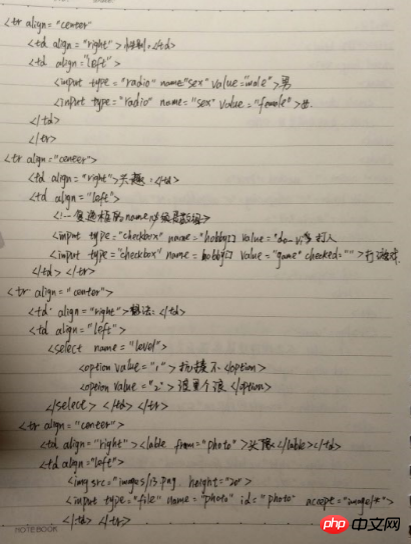 <tr align="center"
<td align="right">性别:</td>
<td align="left">
<input type="radio" name"sex" value="male">男
<input type="radio" name="sex" value="female">女.
</td>
</tr>
<tr align="center">
<td align="right">兴趣:</td>
<td align="left">
<!--复选框的name必须是数组>
<input type="checkbox" name="hobby[] value= 打人
<input type="checkbox" name= hobby[] value="game" checked="">打游戏
</td> </tr>
<tr align="center">
<td align="right">想法:</td>
<td align="left">
<select name="level">
<option value="1"> 不<option>
<option value="2"> </option>
</select> </td> </tr>
<tr align="center">
<td align="right"><lable from="photo">头像</lable></td>
<td align="left">
<img src="images/13.png height="20">
<input type="file" name="photo" id="photo" accept="image/*">
</td> </tr>
NOTEBOOK
php 中文网